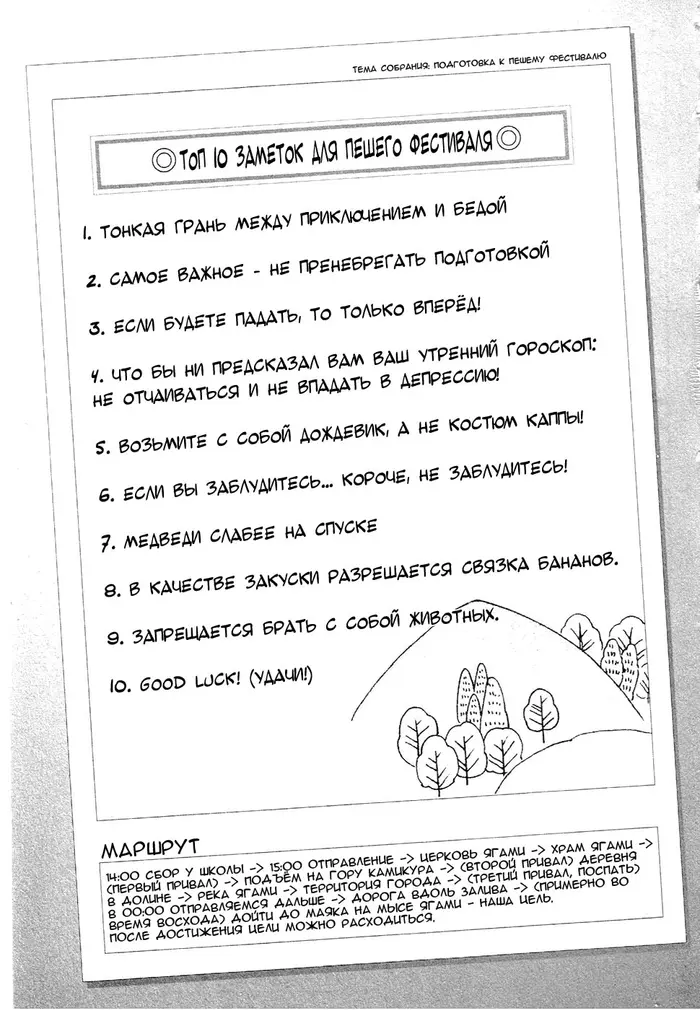 ТЕМА СОБРАНИЯ: ПОДГОТОВКА К ПЕШЕМУ ФЕСТИВАЛЮ
ТОП 10 ЗАМЕТОК ДЛЯ ПЕШЕГО ФЕСТИВАЛЯ
1. ТОНКАЯ ГРАНЬ МЕЖДУ ПРИКЛЮЧЕНИЕМ И БЕДОЙ
2. САМОЕ ВАЖНОЕ - НЕ ПРЕНЕБРЕГАТЬ ПОДГОТОВКОЙ
3. ЕСЛИ БУДЕТЕ ПАДАТЬ, ТО ТОЛЬКО ВПЕРЁД!
4. ЧТО БЫ НИ ПРЕДСКАЗАЛ ВАМ ВАШ УТРЕННИЙ ГОРОСКОП:
НЕ ОТЧАИВАТЬСЯ И НЕ ВПАДАТЬ В ДЕПРЕССИЮ!
5. ВОЗЬМИТЕ С СОБОЙ ДОЖДЕВИК, А НЕ КОСТЮМ КАППЫ!
6. ЕСЛИ ВЫ ЗАБЛУДИТЕСЬ... КОРОЧЕ, НЕ ЗАБЛУДИТЕСЬ!
7. МЕДВЕДИ СЛАБЕЕ НА СПУСКЕ
8. В КАЧЕСТВЕ ЗАКУСКИ РАЗРЕШАЕТСЯ СВЯЗКА БАНАНОВ.
9. ЗАПРЕЩАЕТСЯ БРАТЬ С СОБОЙ ЖИВОТНЫХ.
10. GOOD LUCK! (УДАЧИ!)
МАРШРУТ
14:00 СБОР У ШКОЛЫ -> 15:00 ОТПРАВЛЕНИЕ -> ЦЕРКОВЬ ЯГАМИ -> ХРАМ ЯГАМИ ->
(ПЕРВЫЙ ПРИВАЛ) -> ПОДЪЁМ НА ГОРУ КАМИКУРА -> (ВТОРОЙ ПРИВАЛ) ДЕРЕВНЯ
В ДОЛИНЕ -> РЕКА ЯГАМИ -> ТЕРРИТОРИЯ ГОРОДА -> (ТРЕТИЙ ПРИВАЛ, ПОСПАТЬ)
В 00:00 ОТПРАВЛЯЕМСЯ ДАЛЬШЕ -> ДОРОГА ВДОЛЬ ЗАЛИВА -> (ПРИМЕРНО ВО
ВРЕМЯ ВОСХОДА) ДОЙТИ ДО МАЯКА НА МЫСЕ ЯГАМИ - НАША ЦЕЛЬ.
ПОСЛЕ ДОСТИЖЕНИЯ ЦЕЛИ МОЖНО РАСХОДИТЬСЯ.